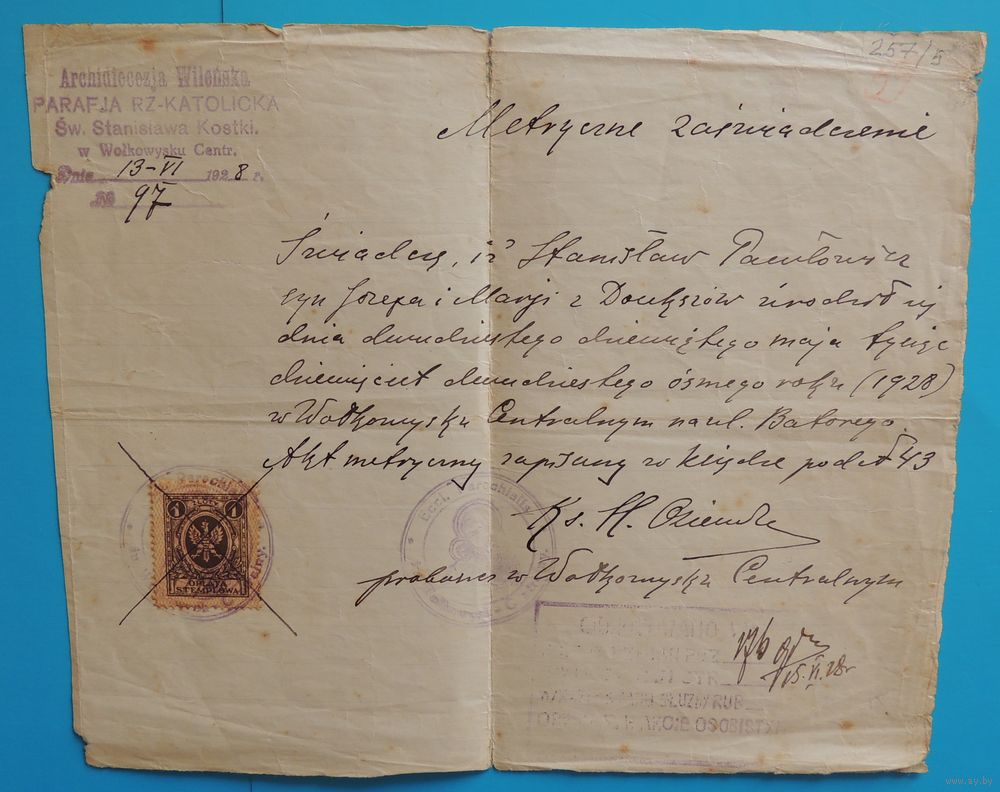 257/5
Archidiecezja Wileńska
PARAFJA RZ-KATOLICKA
Św. Stanisława Kostki.
w Wołkowysku Centr.
Dnia 13-VI 1928 r.
№ 97
Metryczne zaświadczenie
Świadczę, iż Stanisław Pawłowicz
syn Józefa i Marji z Doukszów urodził się
dnia dwudziestego dziewiątego maja tysiąc
dziewięćset dwudziestego ósmego roku (1928)
w Wołkowysku Centralnym na ul. Batorego.
Akt metryczny zapisany w księdze pod № 43
Ks. H.
proboszcz w Wołkowysku Centralnym
1 ZŁOTY 1
OPŁATA
STEMPLOWA
Eccl. Parochialis
176
15.VI.28 r
SŁUŻBY RUB.
AKCIE OSOBISTYM
www.ay.by